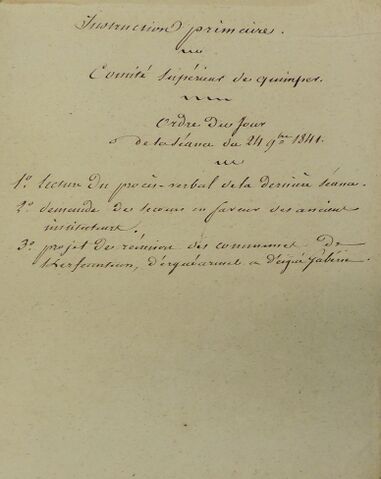 Instruction primaires.
Comité Supérieur de quimper.
Ordre du Jour
de la séance du 24 9bre 1841.
1º lecture du procès-verbal de la dernière séance.
2º demande de secours en faveur des anciens
instituteurs.
3º projet de réunion des communes de
Kerfeunteun, d'ergué armel et d'ergué gabéric